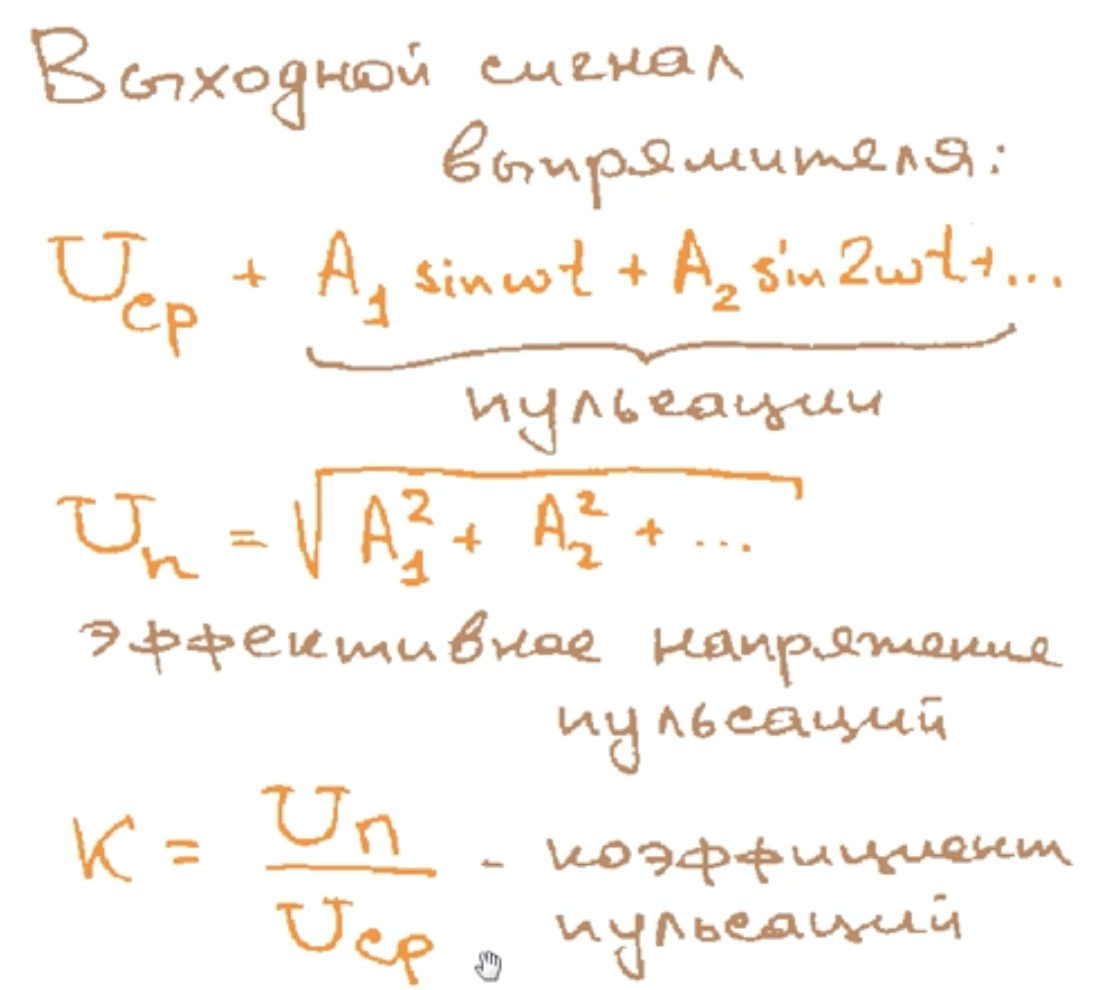 Выходной сигнал
выпрямителя:
U_ср + A_1 sin ωt + A_2 sin 2ωt + ...
пульсации
U_п = √(A_1² + A_2² + ...)
эффективное напряжение
пульсаций
K = U_п / U_ср - коэффициент
пульсаций